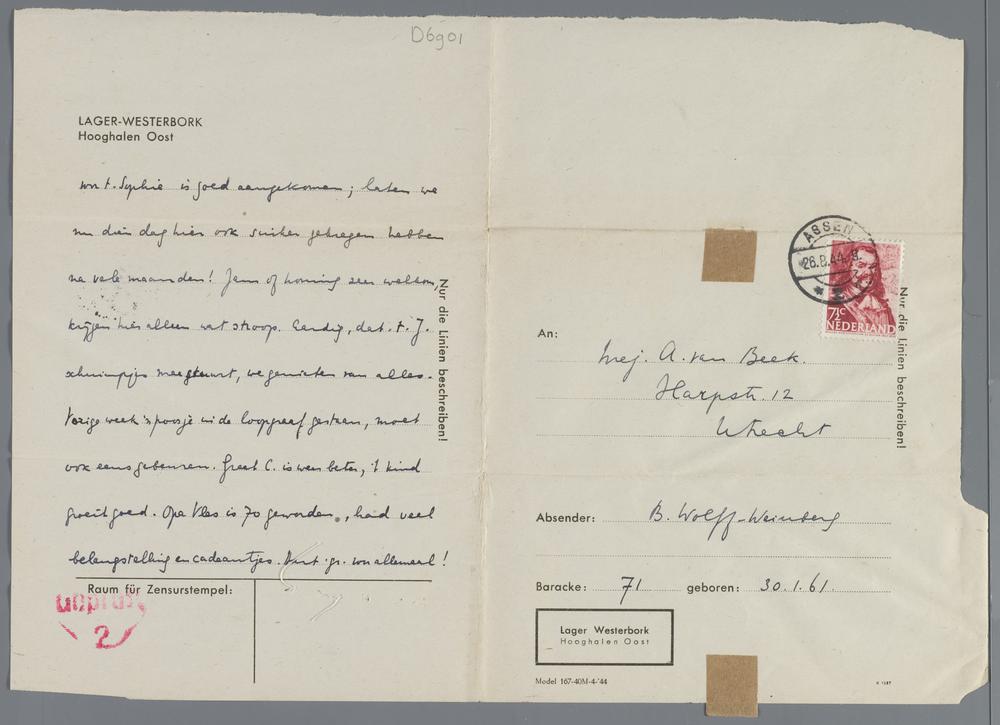 D6901
LAGER-WESTERBORK
Hooghalen Oost
van t. Sophie is goed aangekomen; laten we
nu dien dag hier ook suiker gekregen hebben
na vele maanden! Jam of honing zeer welkom,
krijgen hier alleen wat stroop. Aardig, dat t. J.
schuimpjes meestuurt, we genieten van alles.
Vorige week 'n poosje in de loopgraaf gestaan, moet
ook eens gebeuren. Greet C. is weer beter, 't kind
groeit goed. Opa Vles is 70 geworden, had veel
belangstelling en cadeautjes. Hart. gr. van allemaal!
Nur die Linien beschreiben!
Raum für Zensurstempel:
2
ASSEN
26.8.44. 8.
7½c
NEDERLAND
An:
Mej. A. van Beek.
Harpstr. 12
Utrecht
Nur die Linien beschreiben!
Absender: B. Wolff-Weinberg
Baracke: 71 geboren: 30.1.61.
Lager Westerbork
Hooghalen Oost
Model 167-40M-4-'44
K 1387